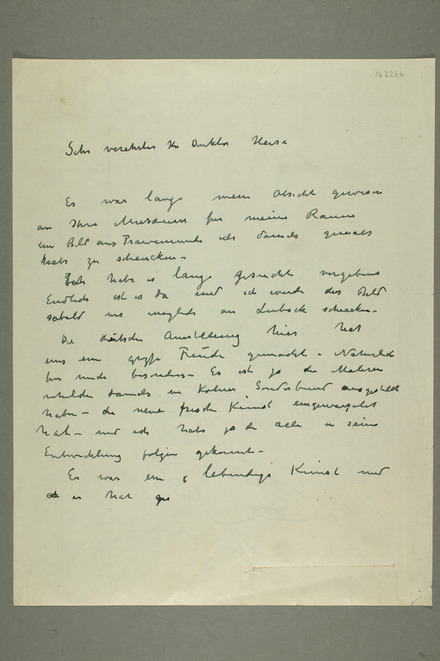 N 2266
Sehr verehrter Hr Direktor Heise
Es war lange mein Absicht gewesen
an Ihre Museum für meine Raum
ein Bild aus Travemünde ich damals gemalt
habe zu schencken –
Ich habe es lange gesucht vergebens
Endlich ist es da und ich werde das Bild
sobald wie möglich an Lübeck schicken –
Die deutsche Ausstellung hier hat
uns eine grosse Freude gemacht – Natürlich
für mich besonders – Es ist ja die Malerei
welche damals in Kölner Sonderbund ausgestellt
habe – die neue frische Kunst eingeweiht
hat – und ich habe ja die alle in seine
Entwicklung folgen gekonnt –
Es war ein lebendige Kunst und
es hat